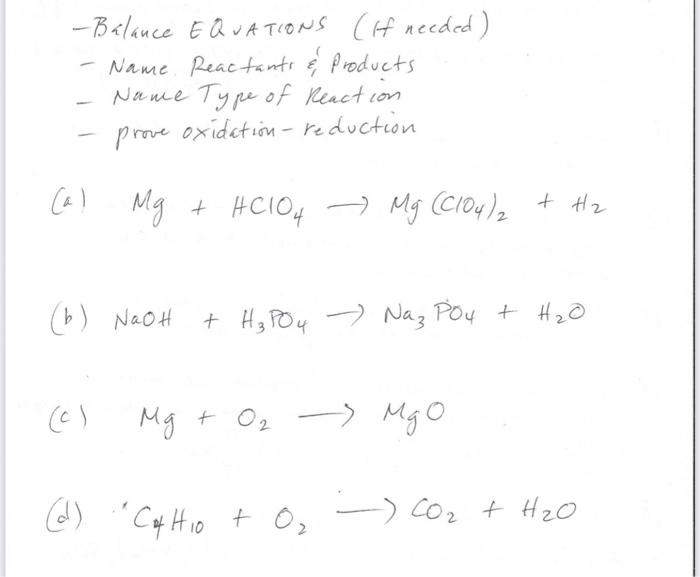 - Balance EQUATIONS (If needed)
- Name Reactants & Products
- Name Type of Reaction
- prove oxidation-reduction
(a) Mg + HClO4 → Mg(ClO4)2 + H2
(b) NaOH + H3PO4 → Na3PO4 + H2O
(c) Mg + O2 → MgO
(d) C4H10 + O2 → CO2 + H2O